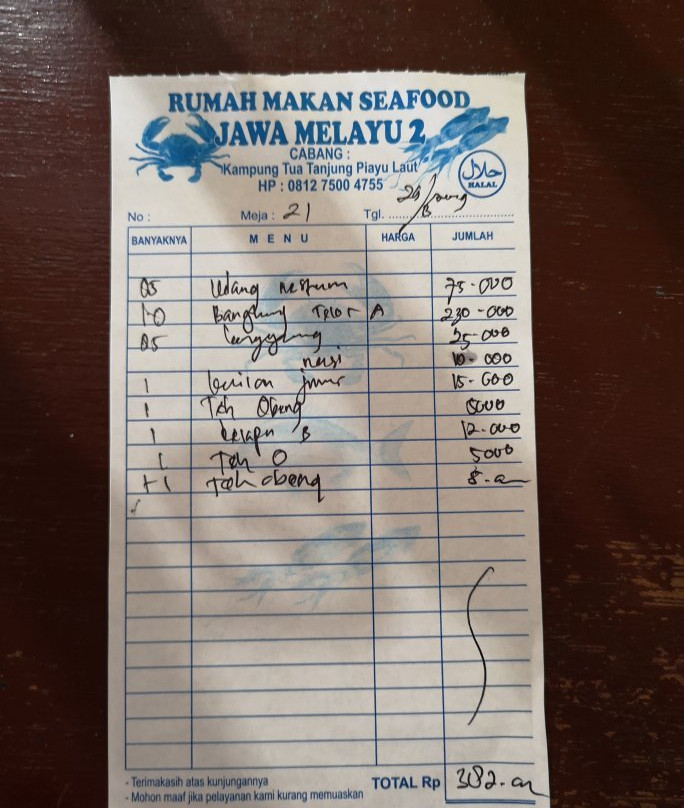 RUMAH MAKAN SEAFOOD
JAWA MELAYU 2
CABANG :
Kampung Tua Tanjung Piayu Laut
HP : 0812 7500 4755
حلال
HALAL
No : Meja : 21 Tgl.
BANYAKNYA MENU HARGA JUMLAH
05 Udang nestum 75-000
10 Telor A 230-000
05 25-000
nasi 10-000
1 15-000
1 Teh Obeng 8000
1 kelapa B 12.000
1 Teh O 5000
+1 Teh obeng 8.-
- Terimakasih atas kunjungannya
- Mohon maaf jika pelayanan kami kurang memuaskan
TOTAL Rp 382.-